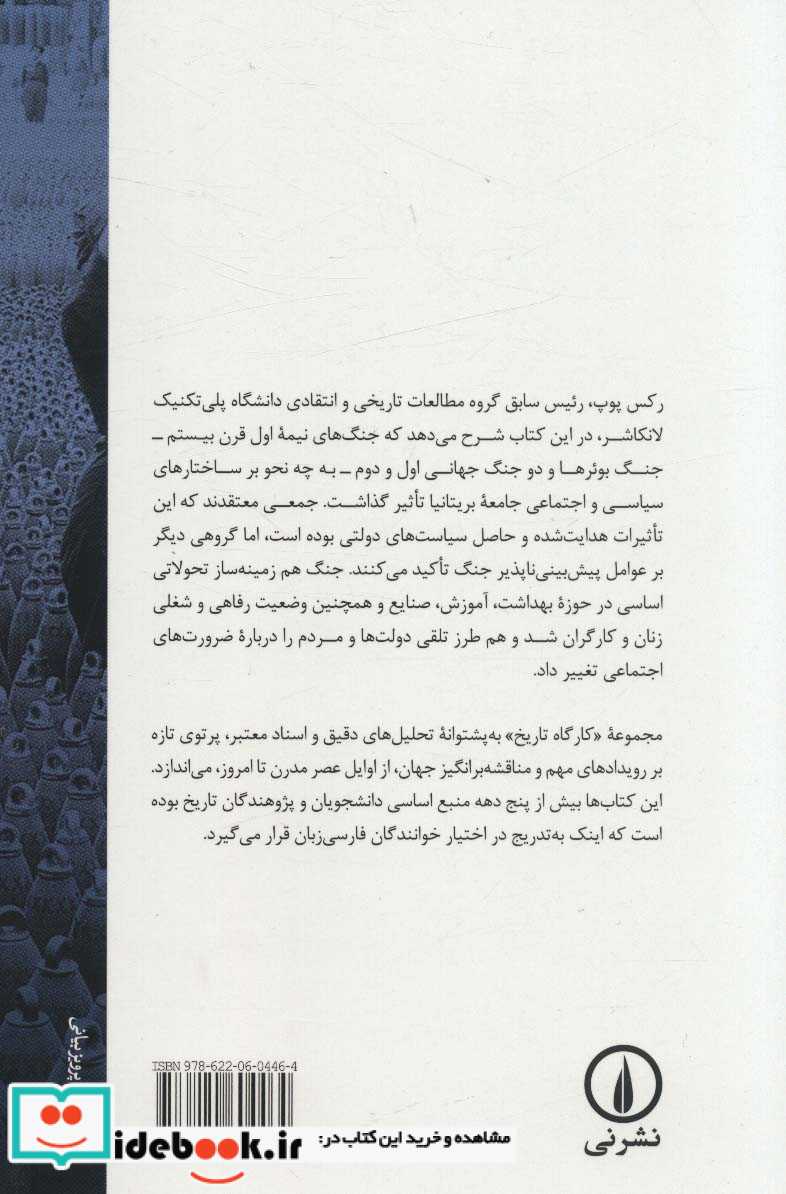 رکس پوپ، رئیس سابق گروه مطالعات تاریخی و انتقادی دانشگاه پلی‌تکنیک
لانکاشر، در این کتاب شرح می‌دهد که جنگ‌های نیمهٔ اول قرن بیستم ــ
جنگ بوئرها و دو جنگ جهانی اول و دوم ــ به چه نحو بر ساختارهای
سیاسی و اجتماعی جامعهٔ بریتانیا تأثیر گذاشت. جمعی معتقدند که این
تأثیرات هدایت‌شده و حاصل سیاست‌های دولتی بوده است، اما گروهی دیگر
بر عوامل پیش‌بینی‌ناپذیر جنگ تأکید می‌کنند. جنگ هم زمینه‌ساز تحولاتی
اساسی در حوزهٔ بهداشت، آموزش، صنایع و همچنین وضعیت رفاهی و شغلی
زنان و کارگران شد و هم طرز تلقی دولت‌ها و مردم را دربارهٔ ضرورت‌های
اجتماعی تغییر داد.
مجموعهٔ «کارگاه تاریخ» به‌پشتوانهٔ تحلیل‌های دقیق و اسناد معتبر، پرتوی تازه
بر رویدادهای مهم و مناقشه‌برانگیز جهان، از اوایل عصر مدرن تا امروز، می‌اندازد.
این کتاب‌ها بیش از پنج دهه منبع اساسی دانشجویان و پژوهندگان تاریخ بوده
است که اینک به‌تدریج در اختیار خوانندگان فارسی‌زبان قرار می‌گیرد.
پرویز بیانی
ISBN 978-622-06-0446-4
نشرنی
مشاهده و خرید این کتاب در:
idebook.ir